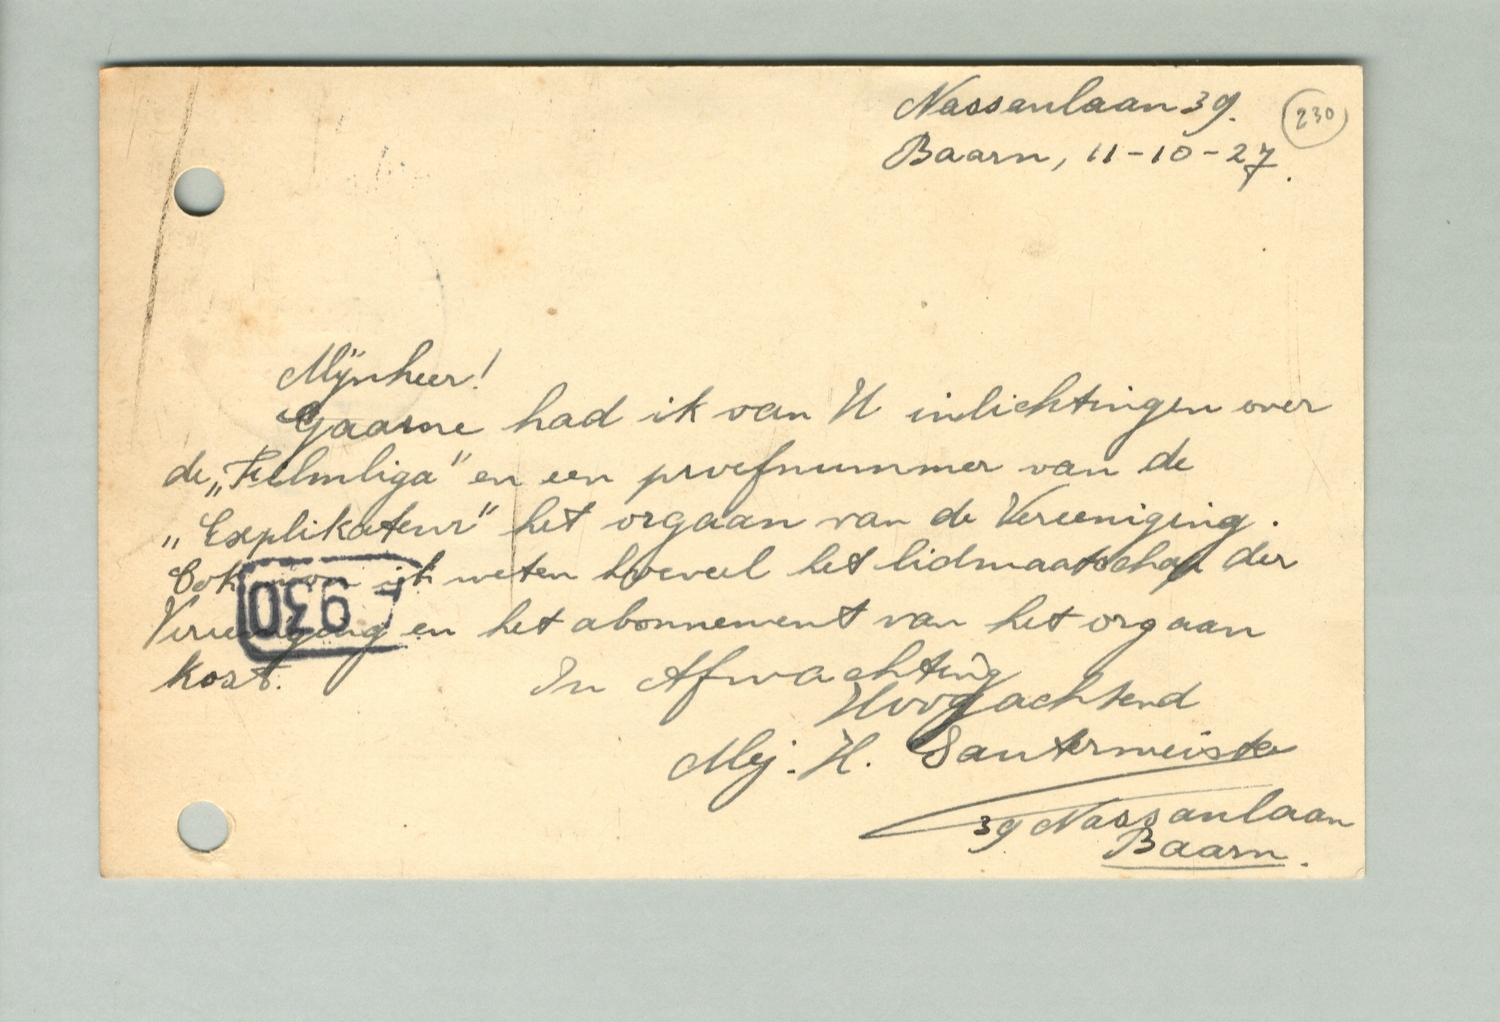 Nassaulaan 39.
230
Baarn, 11-10-27.
Mijnheer!
Gaarne had ik van U inlichtingen over
de „Filmliga" en een proefnummer van de
„Explikateur" het orgaan van de Vereeniging.
Ook ik weten hoeveel het lidmaatschap der
Vereeniging en het abonnement van het orgaan
kost.
930
In Afwachting
Hoogachtend
Mej. H. Santermeister
39 Nassaulaan
Baarn.